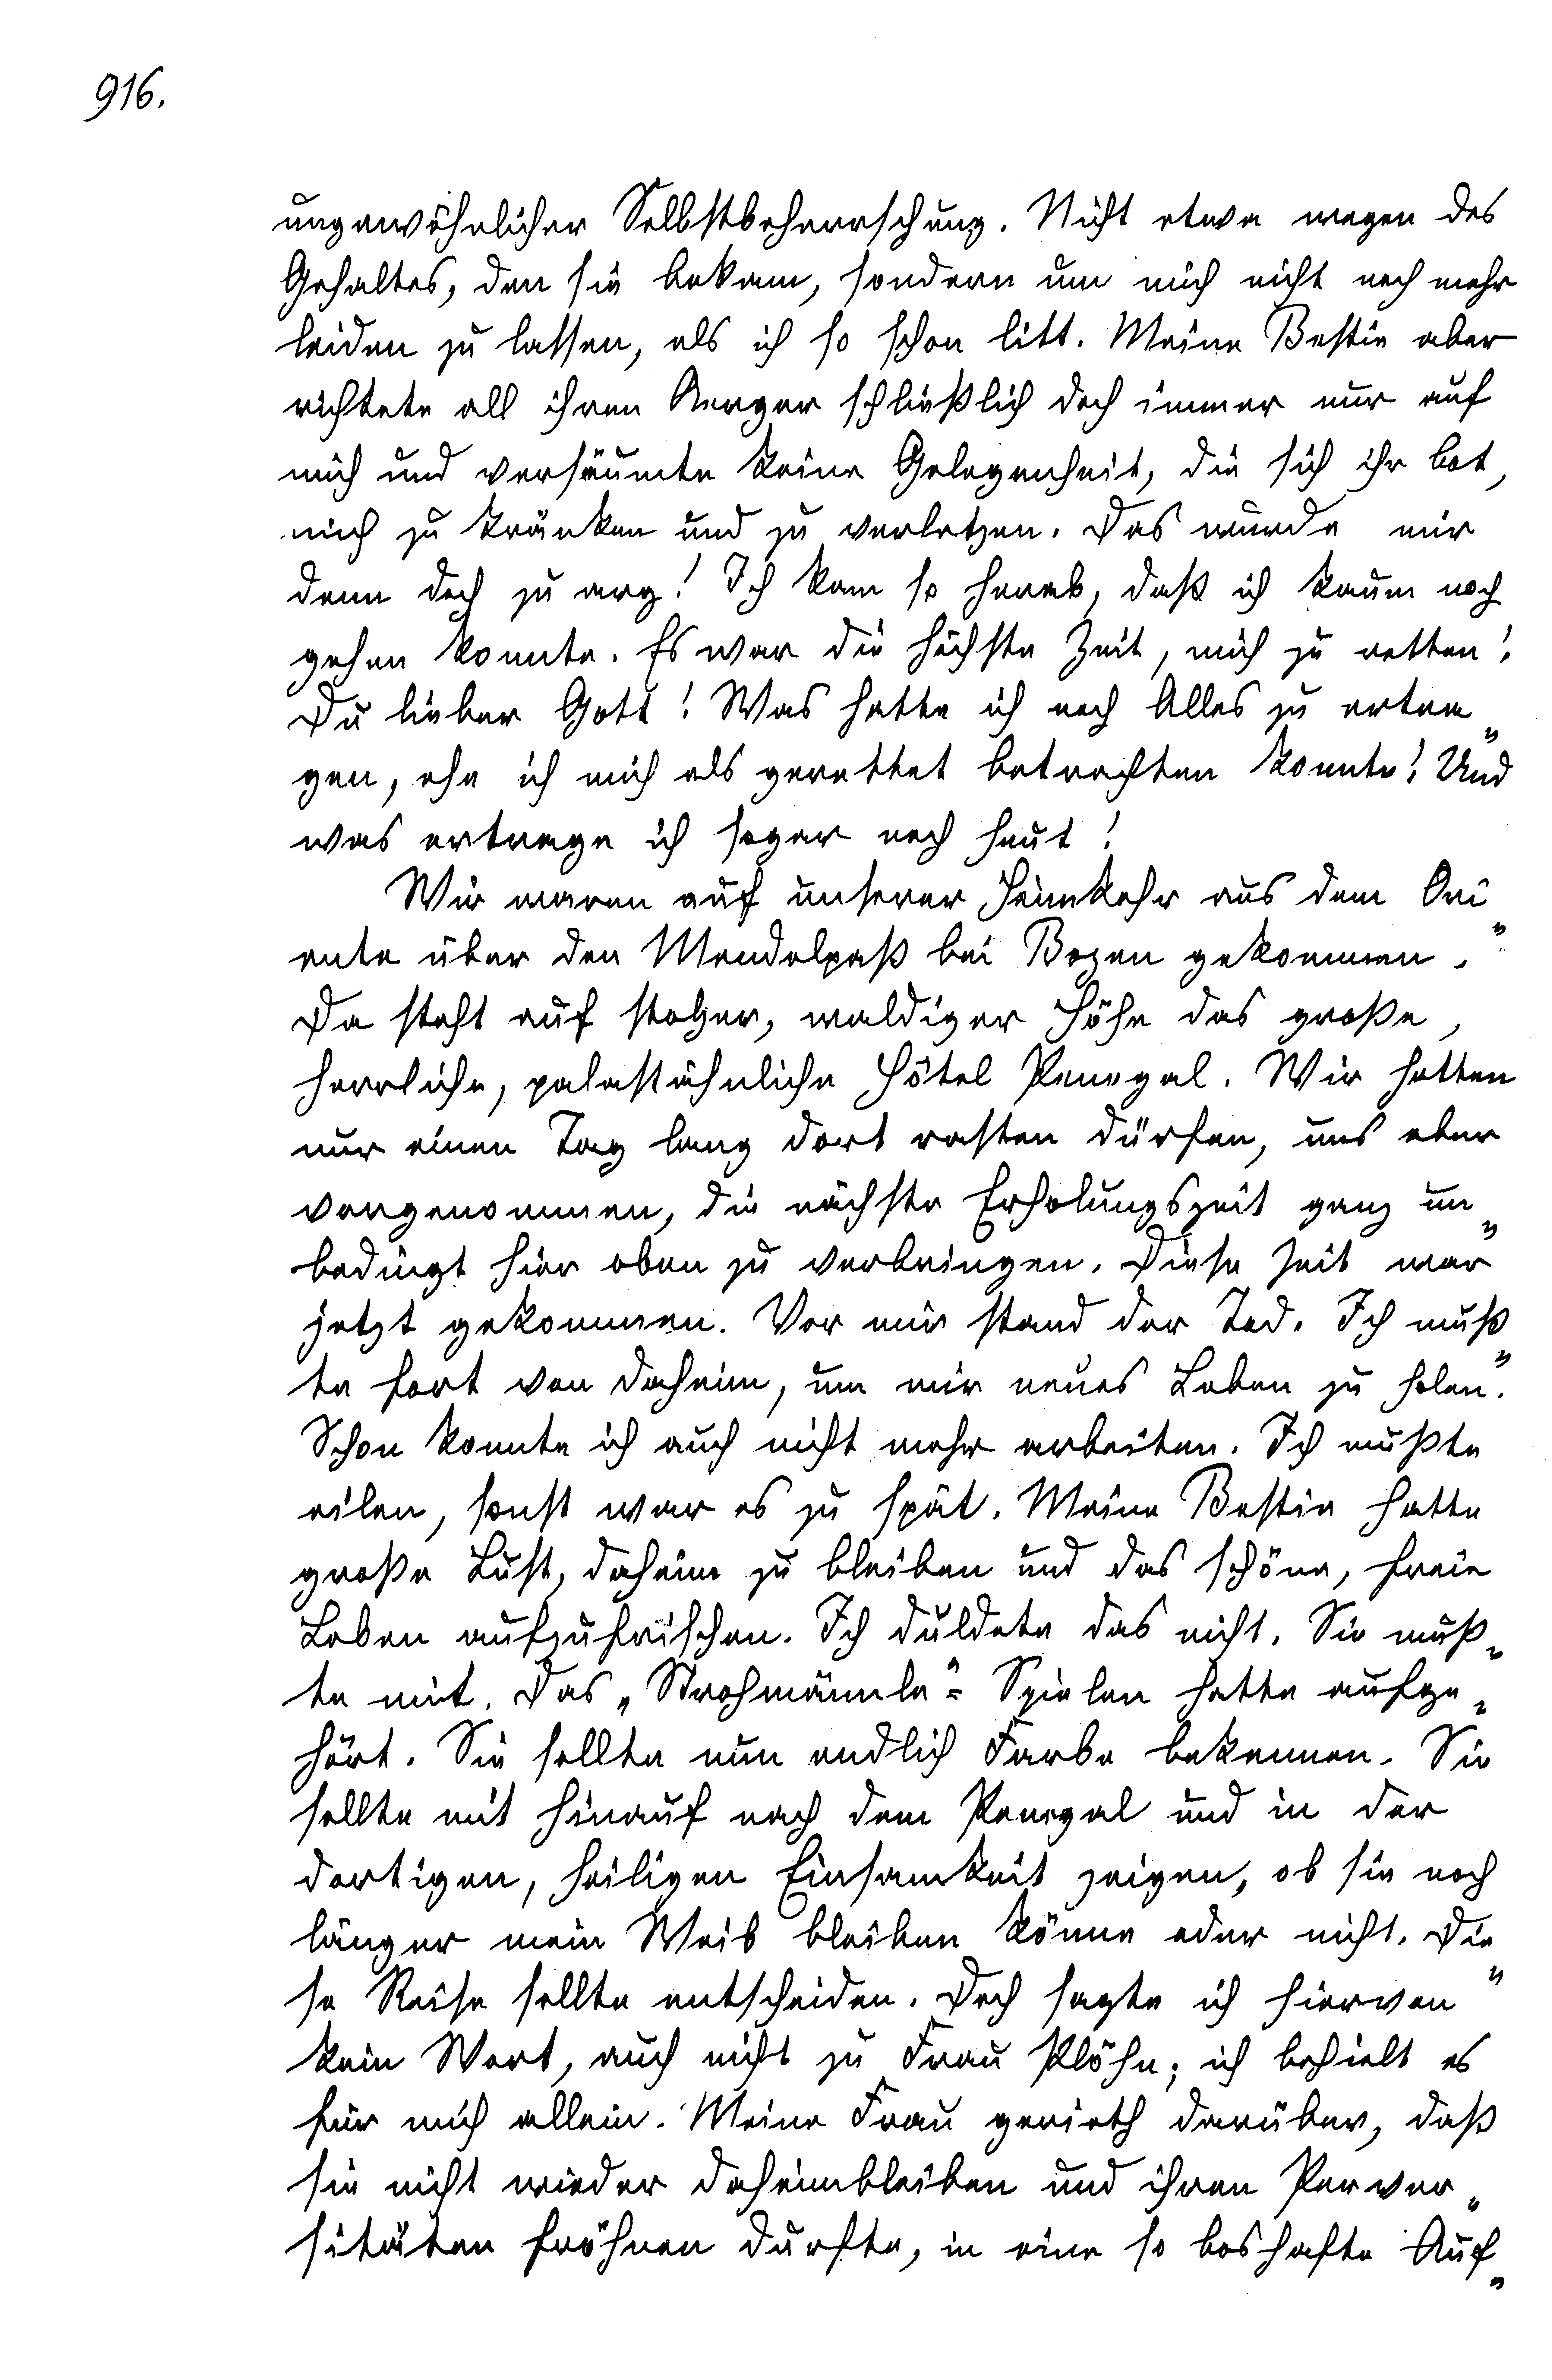 916.
ungewöhnlicher Selbstbeherrschung. Nicht etwa wegen des
Gehaltes, den sie bekam, sondern um mich nicht noch mehr
leiden zu lassen, als ich so schon litt. Meine Bestie aber
richtete all ihren Aerger schließlich doch immer nur auf
mich und versäumte keine Gelegenheit, die sich ihr bot,
mich zu kränken und zu verletzen. Das wurde mir
denn doch zu arg! Ich kam so herab, daß ich kaum noch
gehen konnte. Es war die höchste Zeit, mich zu retten!
Du lieber Gott! Was hatte ich noch Alles zu ertra„
gen, ehe ich mich als gerettet betrachten konnte! Und
was ertrage ich sogar noch heut!
Wir waren auf unserer Heimkehr aus dem Ori„
ente über den Mendelpaß bei Bozen gekommen.
Da steht auf stolzer, waldiger Höhe das große,
herrliche, palastähnliche Hôtel Penegal. Wir hatten
nur einen Tag lang dort rasten dürfen, uns aber
vorgenommen, die nächste Erholungszeit ganz un„
bedingt hier oben zu verbringen. Diese Zeit war
jetzt gekommen. Vor mir stand der Tod. Ich muß„
te fort von daheim, um mir neues Leben zu holen.
Schon konnte ich auch nicht mehr arbeiten. Ich mußte
eilen, sonst war es zu spät. Meine Bestie hatte
große Lust, daheim zu bleiben und das schöne, freie
Leben aufzufrischen. Ich duldete das nicht. Sie muß„
te mit. Das „Strohmännle“= Spielen hatte aufge„
hört. Sie sollte nun endlich Farbe bekennen. Sie
sollte mit hinauf nach dem Penegal und in der
dortigen, heiligen Einsamkeit zeigen, ob sie noch
länger mein Weib bleiben könne oder nicht. Die„
se Reise sollte entscheiden. Doch sagte ich hiervon
kein Wort, auch nicht zu Frau Plöhn; ich behielt es
für mich allein. Meine Frau gerieth darüber, daß
sie nicht wieder daheimbleiben und ihren Perver„
sitäten fröhnen durfte, in eine so boshafte Auf„